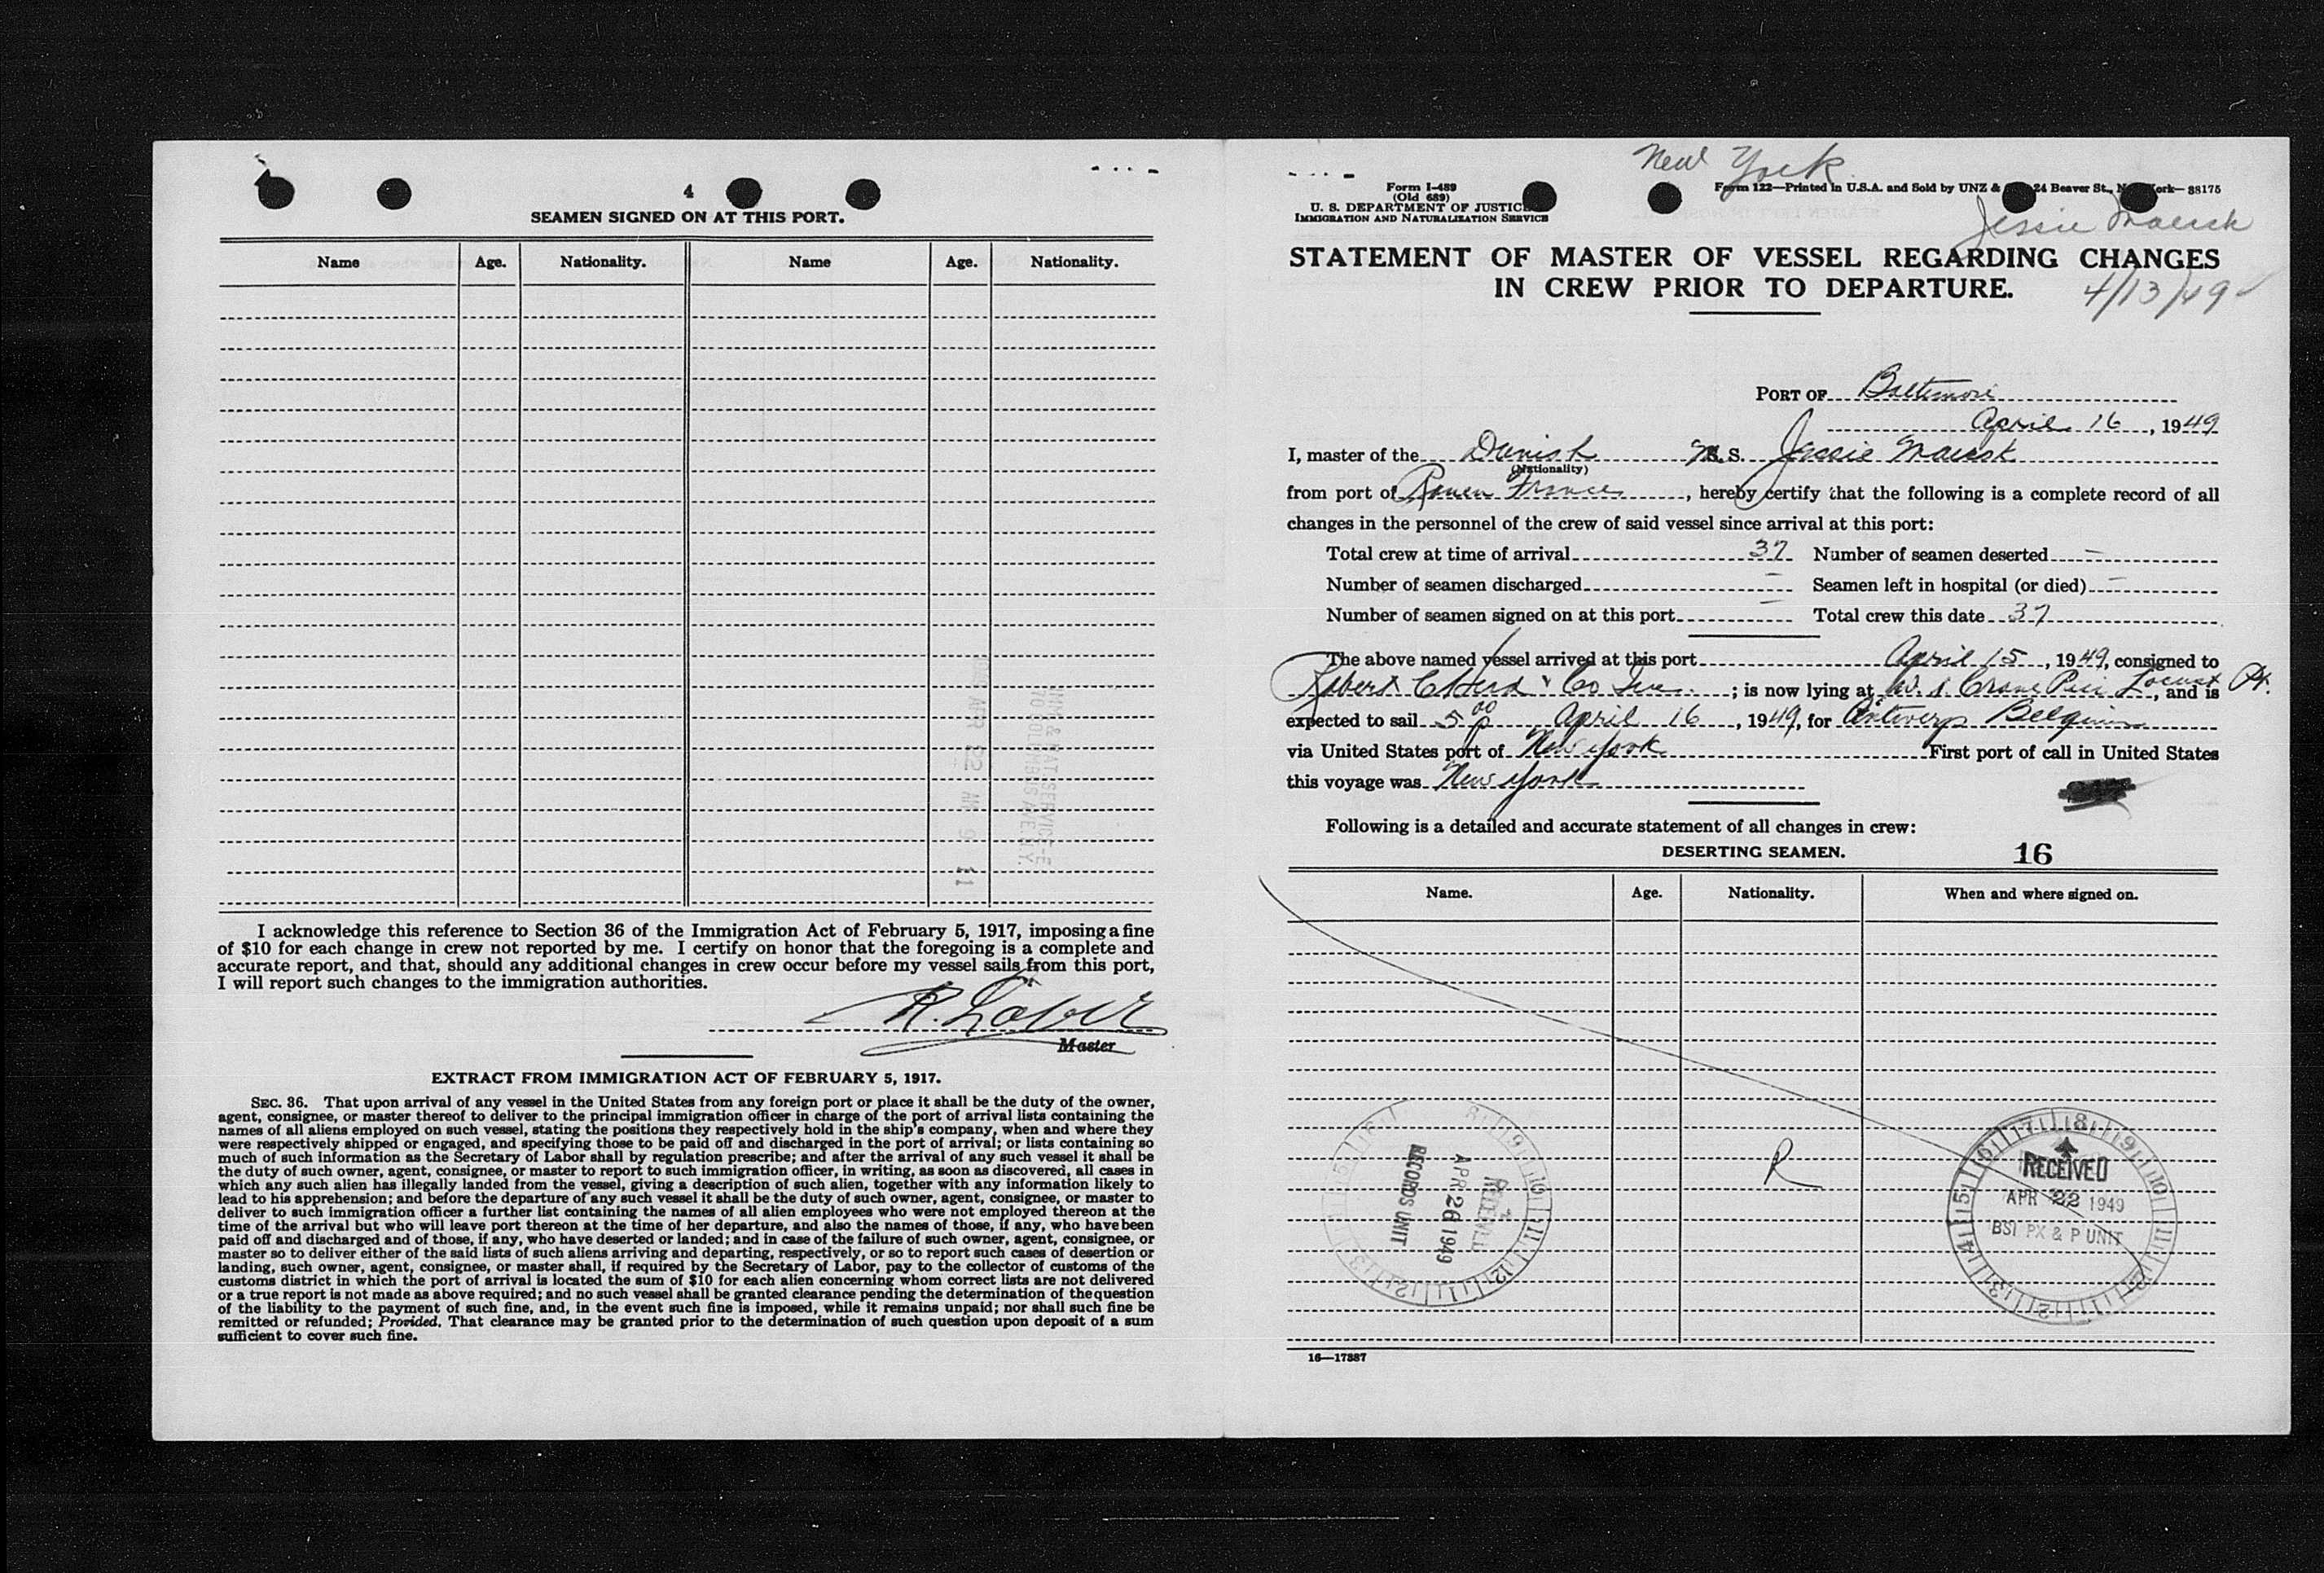 4
SEAMEN SIGNED ON AT THIS PORT.
Name Age. Nationality. Name Age. Nationality.
I acknowledge this reference to Section 36 of the Immigration Act of February 5, 1917, imposing a fine
of $10 for each change in crew not reported by me. I certify on honor that the foregoing is a complete and
accurate report, and that, should any additional changes in crew occur before my vessel sails from this port,
I will report such changes to the immigration authorities.
Master
EXTRACT FROM IMMIGRATION ACT OF FEBRUARY 5, 1917.
SEC. 36. That upon arrival of any vessel in the United States from any foreign port or place it shall be the duty of the owner,
agent, consignee, or master thereof to deliver to the principal immigration officer in charge of the port of arrival lists containing the
names of all aliens employed on such vessel, stating the positions they respectively hold in the ship's company, when and where they
were respectively shipped or engaged, and specifying those to be paid off and discharged in the port of arrival; or lists containing so
much of such information as the Secretary of Labor shall by regulation prescribe; and after the arrival of any such vessel it shall be
the duty of such owner, agent, consignee, or master to report to such immigration officer, in writing, as soon as discovered, all cases in
which any such alien has illegally landed from the vessel, giving a description of such alien, together with any information likely to
lead to his apprehension; and before the departure of any such vessel it shall be the duty of such owner, agent, consignee, or master to
deliver to such immigration officer a further list containing the names of all alien employees who were not employed thereon at the
time of the arrival but who will leave port thereon at the time of her departure, and also the names of those, if any, who have been
paid off and discharged and of those, if any, who have deserted or landed; and in case of the failure of such owner, agent, consignee, or
master so to deliver either of the said lists of such aliens arriving and departing, respectively, or so to report such cases of desertion or
landing, such owner, agent, consignee, or master shall, if required by the Secretary of Labor, pay to the collector of customs of the
customs district in which the port of arrival is located the sum of $10 for each alien concerning whom correct lists are not delivered
or a true report is not made as above required; and no such vessel shall be granted clearance pending the determination of the question
of the liability to the payment of such fine, and, in the event such fine is imposed, while it remains unpaid; nor shall such fine be
remitted or refunded; Provided, That clearance may be granted prior to the determination of such question upon deposit of a sum
sufficient to cover such fine.
New York
Form I-489
(Old 689)
U. S. DEPARTMENT OF JUSTICE
IMMIGRATION AND NATURALIZATION SERVICE
Form 122—Printed in U.S.A. and Sold by UNZ & 24 Beaver St., N ork—88175
Jessie Maersk
STATEMENT OF MASTER OF VESSEL REGARDING CHANGES
IN CREW PRIOR TO DEPARTURE.
4/13/49
PORT OF Baltimore
April 16, 1949
I, master of the Danish M.S. Jessie Maersk
(Nationality)
from port of Rouen France, hereby certify that the following is a complete record of all
changes in the personnel of the crew of said vessel since arrival at this port:
Total crew at time of arrival 37 Number of seamen deserted –
Number of seamen discharged – Seamen left in hospital (or died) –
Number of seamen signed on at this port – Total crew this date 37
The above named vessel arrived at this port April 15, 1949, consigned to
Robert C Herd & Co Inc.; is now lying at W. S. Crane Pier Locust Pt., and is
expected to sail 5 00 p April 16, 1949, for Antwerp Belgium
via United States port of New York First port of call in United States
this voyage was New York
Following is a detailed and accurate statement of all changes in crew:
DESERTING SEAMEN. 16
Name. Age. Nationality. When and where signed on.
R
RECEIVED
APR 26 1949
RECORDS UNIT
RECEIVED
APR 22 1949
BSI PX & P UNIT
16—17387